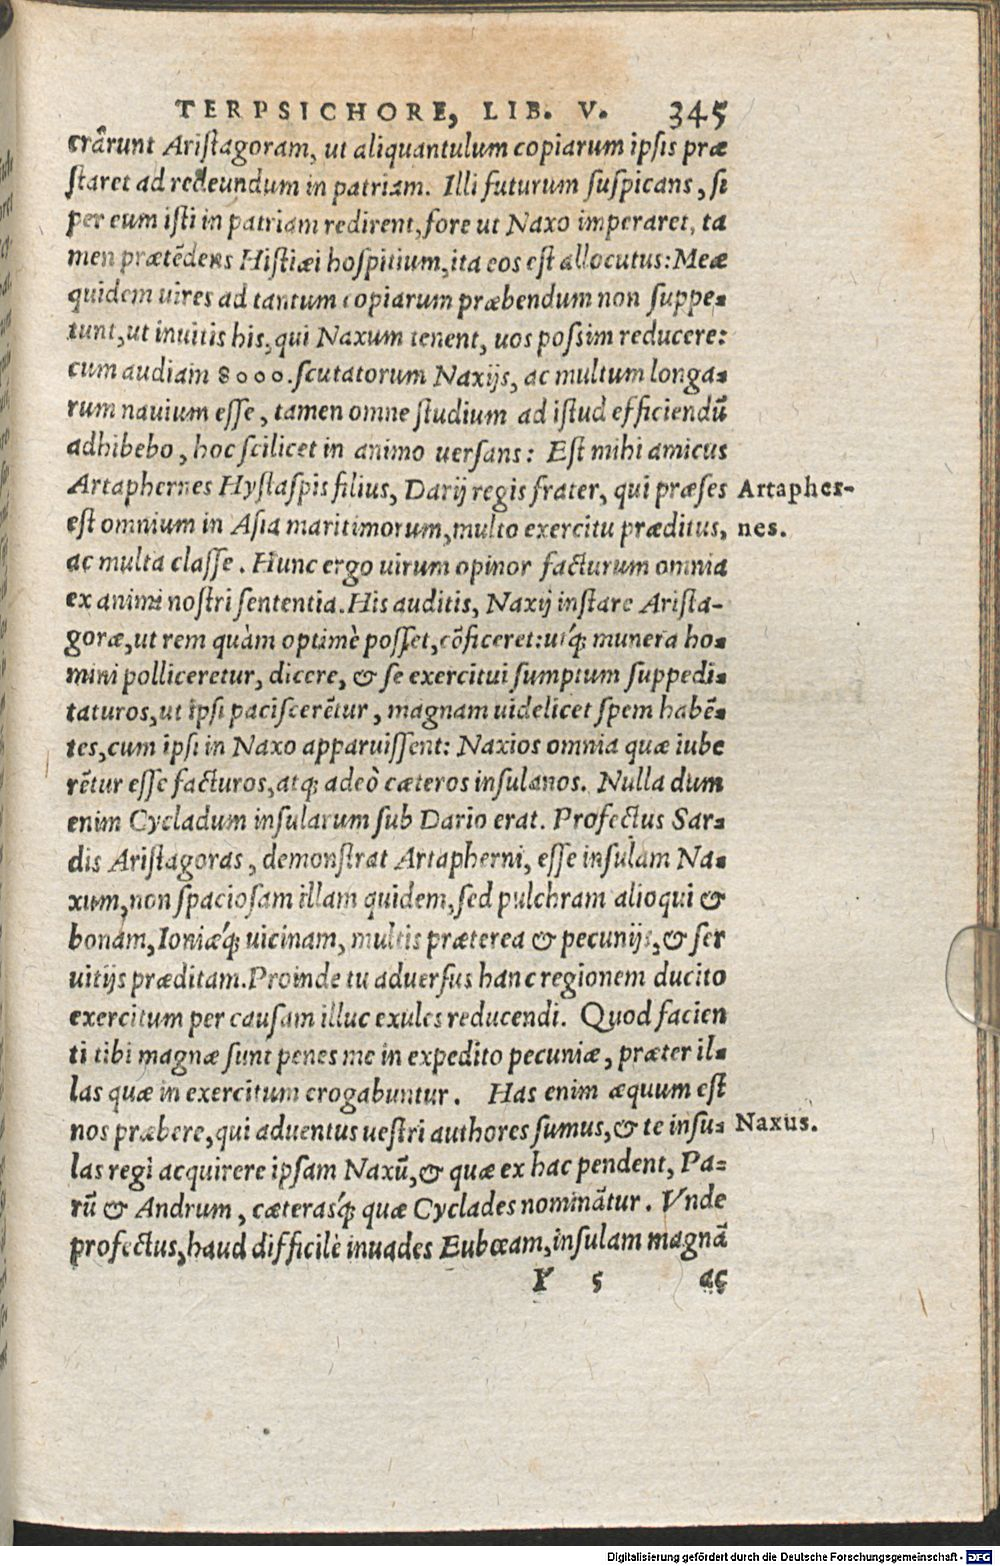 TERPSICHORE, LIB. V. 345
crârunt Aristagoram, ut aliquantulum copiarum ipsis præ
staret ad redeundum in patriam. Illi futurum suspicans, si
per eum isti in patriam redirent, fore ut Naxo imperaret, ta
men prætēdens Histiæi hospitium, ita eos est allocutus: Meæ
quidem uires ad tantum copiarum præbendum non suppe-
tunt, ut inuitis his, qui Naxum tenent, uos possim reducere:
cum audiam 8000. scutatorum Naxijs, ac multum longa-
rum nauium esse, tamen omne studium ad istud efficiendū
adhibebo, hoc scilicet in animo uersans: Est mihi amicus
Artaphernes Hystaspis filius, Darij regis frater, qui præses Artapher-
est omnium in Asia maritimorum, multo exercitu præditus, nes.
ac multa classe. Hunc ergo uirum opinor facturum omnia
ex animi nostri sententia. His auditis, Naxij instare Arista-
goræ, ut rem quàm optimè posset, cōficeret: utq́; munera ho-
mini polliceretur, dicere, & se exercitui sumptum suppedi-
taturos, ut ipsi paciscerētur, magnam uidelicet spem habē-
tes, cum ipsi in Naxo apparuissent: Naxios omnia quæ iube
rētur esse facturos, atq; adeò cæteros insulanos. Nulla dum
enim Cycladum insularum sub Dario erat. Profectus Sar-
dis Aristagoras, demonstrat Artapherni, esse insulam Na-
xum, non spaciosam illam quidem, sed pulchram alioqui &
bonam, Ioniæq́; uicinam, multis præterea & pecunijs, & ser
uitijs præditam. Proinde tu aduersus hanc regionem ducito
exercitum per causam illuc exules reducendi. Quod facien
ti tibi magnæ sunt penes me in expedito pecuniæ, præter il-
las quæ in exercitum erogabuntur. Has enim æquum est
nos præbere, qui aduentus uestri authores sumus, & te insu- Naxus.
las regi acquirere ipsam Naxū, & quæ ex hac pendent, Pa-
rū & Andrum, cæterasq́; quæ Cyclades nominātur. Vnde
profectus, haud difficilè inuades Eubœam, insulam magnā
Y 5 ac
Digitalisierung gefördert durch die Deutsche Forschungsgemeinschaft - DFG